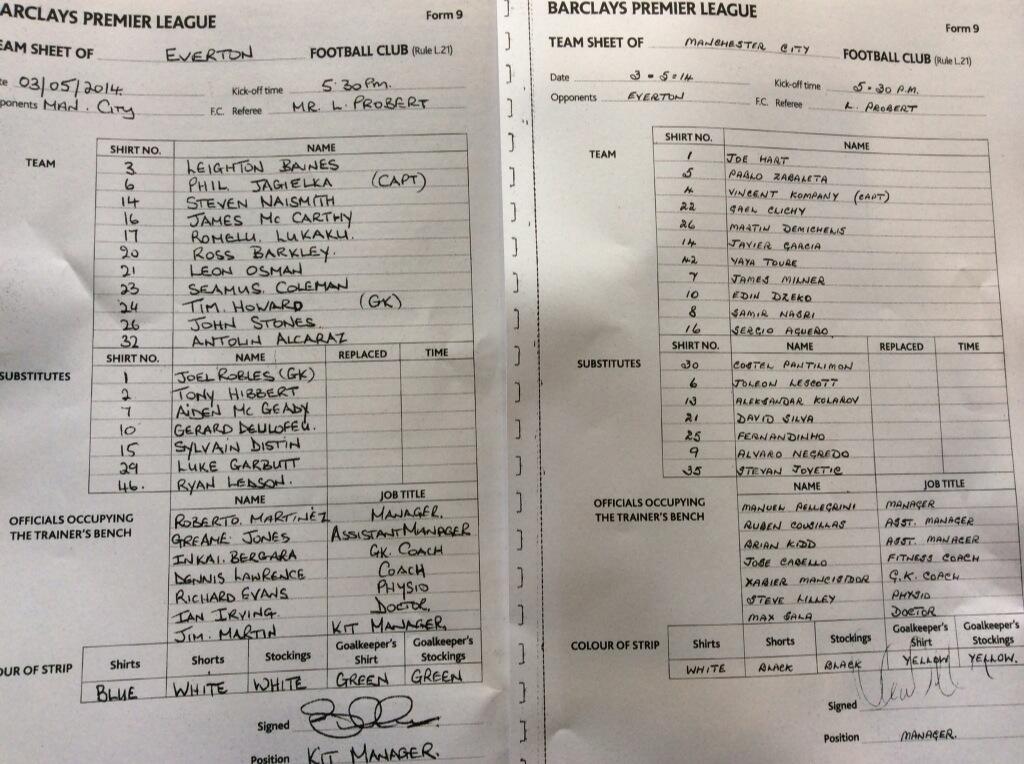 BARCLAYS PREMIER LEAGUE
Form 9
TEAM SHEET OF EVERTON FOOTBALL CLUB (Rule L.21)
03/05/2014 Kick-off time 5:30pm.
Opponents MAN. City F.C. Referee MR. L. PROBERT
TEAM
SHIRT NO. NAME
3 LEIGHTON BAINES
6 PHIL JAGIELKA (CAPT)
14 STEVEN NAISMITH
16 JAMES Mc CARTHY
17 ROMELU. LUKAKU.
20 ROSS BARKLEY.
21 LEON OSMAN
23 SEAMUS COLEMAN
24 TIM. HOWARD (GK)
26 JOHN STONES.
32 ANTOLIN ALCARAZ
SUBSTITUTES
SHIRT NO. NAME REPLACED TIME
1 JOEL ROBLES (GK)
2 TONY HIBBERT
7 AIDEN Mc GEADY
10 GERARD DEULOFEU.
15 SYLVAIN DISTIN
29 LUKE GARBUTT
46. RYAN LEDSON.
OFFICIALS OCCUPYING
THE TRAINER'S BENCH
NAME JOB TITLE
ROBERTO. MARTINEZ MANAGER.
GREAME JONES ASSISTANT MANAGER
INKAI. BERGARA GK. COACH
DENNIS LAWRENCE COACH
RICHARD EVANS PHYSIO
IAN IRVING. DOCTOR.
JIM. MARTIN KIT MANAGER.
COLOUR OF STRIP
Shirts Shorts Stockings Goalkeeper's Shirt Goalkeeper's Stockings
BLUE WHITE WHITE GREEN GREEN
Signed
Position KIT MANAGER.
BARCLAYS PREMIER LEAGUE
Form 9
TEAM SHEET OF MANCHESTER CITY FOOTBALL CLUB (Rule L.21)
Date 3-5-14 Kick-off time 5.30 P.M.
Opponents EVERTON F.C. Referee L. PROBERT
TEAM
SHIRT NO. NAME
1 JOE HART
5 PABLO ZABALETA
4 VINCENT KOMPANY (CAPT)
22 GAEL CLICHY
26 MARTIN DEMICHELIS
14 JAVIER GARCIA
42 YAYA TOURE
7 JAMES MILNER
10 EDIN DZEKO
8 SAMIR NASRI
16 SERGIO AGUERO
SUBSTITUTES
SHIRT NO. NAME REPLACED TIME
30 COSTEL PANTILIMON
6 JOLEON LESCOTT
13 ALEKSANDAR KOLAROV
21 DAVID SILVA
25 FERNANDINHO
9 ALVARO NEGREDO
35 STEVAN JOVETIC
OFFICIALS OCCUPYING
THE TRAINER'S BENCH
NAME JOB TITLE
MANUEL PELLEGRINI MANAGER
RUBEN COUSILLAS ASST. MANAGER
BRIAN KIDD ASST. MANAGER
JOSE CABELLO FITNESS COACH
XABIER MANCISIDOR G.K. COACH
STEVE LILLEY PHYSIO
MAX SALA DOCTOR
COLOUR OF STRIP
Shirts Shorts Stockings Goalkeeper's Shirt Goalkeeper's Stockings
WHITE BLACK BLACK YELLOW YELLOW.
Signed
Position MANAGER.